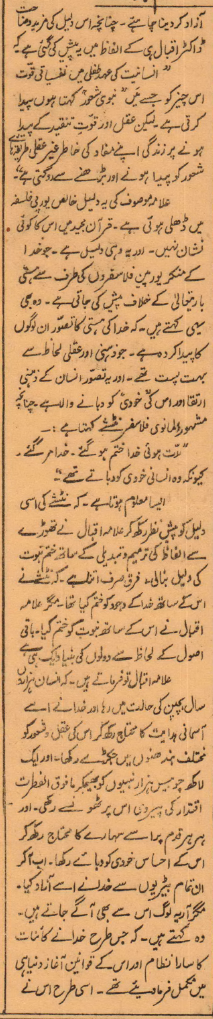 آزاد کر دینا چاہئے۔ چنانچہ اس دلیل کی مزید وضاحت
ڈاکٹر اقبال ہی کے الفاظ میں یہ پیش کی گئی ہے کہ
"انسانیت کی عہد طفلی میں نفسیاتی قوت
اس چیز کو جسے میں "نبوی شعور" کہتا ہوں پیدا
کرتی ہے۔ لیکن عقل اور قوت تنقید کے پیدا
ہونے پر زندگی اپنے مفاد کی خاطر غیر عقلی طریقہائے
شعور کو پیدا ہونے اور بڑھنے سے روکتی ہے"
علامہ موصوف کی یہ دلیل خالص یورپی فلسفہ
میں ڈھلی ہوئی ہے۔ قرآن مجید میں اس کا کوئی
نشان نہیں۔ اور یہ وہی دلیل ہے۔ جو خدا
کے منکر یورپین فلاسفروں کی طرف سے ہستی
باریتعالیٰ کے خلاف پیش کی جاتی ہے۔ وہ بھی
یہی کہتے ہیں۔ کہ خدا کی ہستی کا تصور ان لوگوں
کا پیدا کردہ ہے۔ جو ذہنی اور عقلی لحاظ سے
بہت پست تھے۔ اور یہ تصور انسان کے ذہنی
ارتقا اور اس کی خودی کو دبانے والا ہے۔ چنانچہ
مشہور المانوی فلاسفر نٹشے کہتا ہے:۔
"مدت ہوئی خدا ختم ہو گئے۔ خدا مر گئے۔
کیونکہ وہ انسانی خودی کو دباتے تھے"
ایسا معلوم ہوتا ہے۔ کہ نٹشے کی اسی
دلیل کو پیش نظر رکھ کر علامہ اقبال نے تھوڑے
سے الفاظ کی ترمیم و تبدیلی کے ساتھ ختم نبوت
کی دلیل بنالی۔ فرق صرف اتنا ہے۔ کہ نٹشے نے
اس کے ساتھ خدا کے وجود کو ختم کیا تھا۔ مگر علامہ
اقبال نے اس کے ساتھ نبوت کو ختم کیا۔ باقی
اصول کے لحاظ سے دونوں کی بنیاد ایک ہی ہے
علامہ اقبال تو فرماتے ہیں۔ کہ انسان ہزاروں
سال بچپن کی حالت میں رہا اور خدا نے اسے
آسمانی ہدایت کا محتاج رکھ کر اس کی عقل و شعور کو
مختلف بندھنوں میں جکڑے رکھا۔ اور ایک
لاکھ چوبیس ہزار نبیوں کو بھیجکر مافوق الفطرت
اقتدار کی پیروی اس پر ٹھونسے رکھی۔ اور
ہر ہر قدم پر اسے سہارے کا محتاج رکھ کر
اس کے احساس خودی کو دبائے رکھا۔ اب آکر
ان تمام بیڑیوں سے خدا نے اسے آزاد کیا۔
مگر آریہ لوگ اس سے بھی آگے جاتے ہیں۔
وہ کہتے ہیں۔ کہ جس طرح خدا نے کائنات
کا سارا نظام اور اس کے قوانین آغاز دنیا ہی
میں مکمل فرما دیئے تھے۔ اسی طرح اس نے